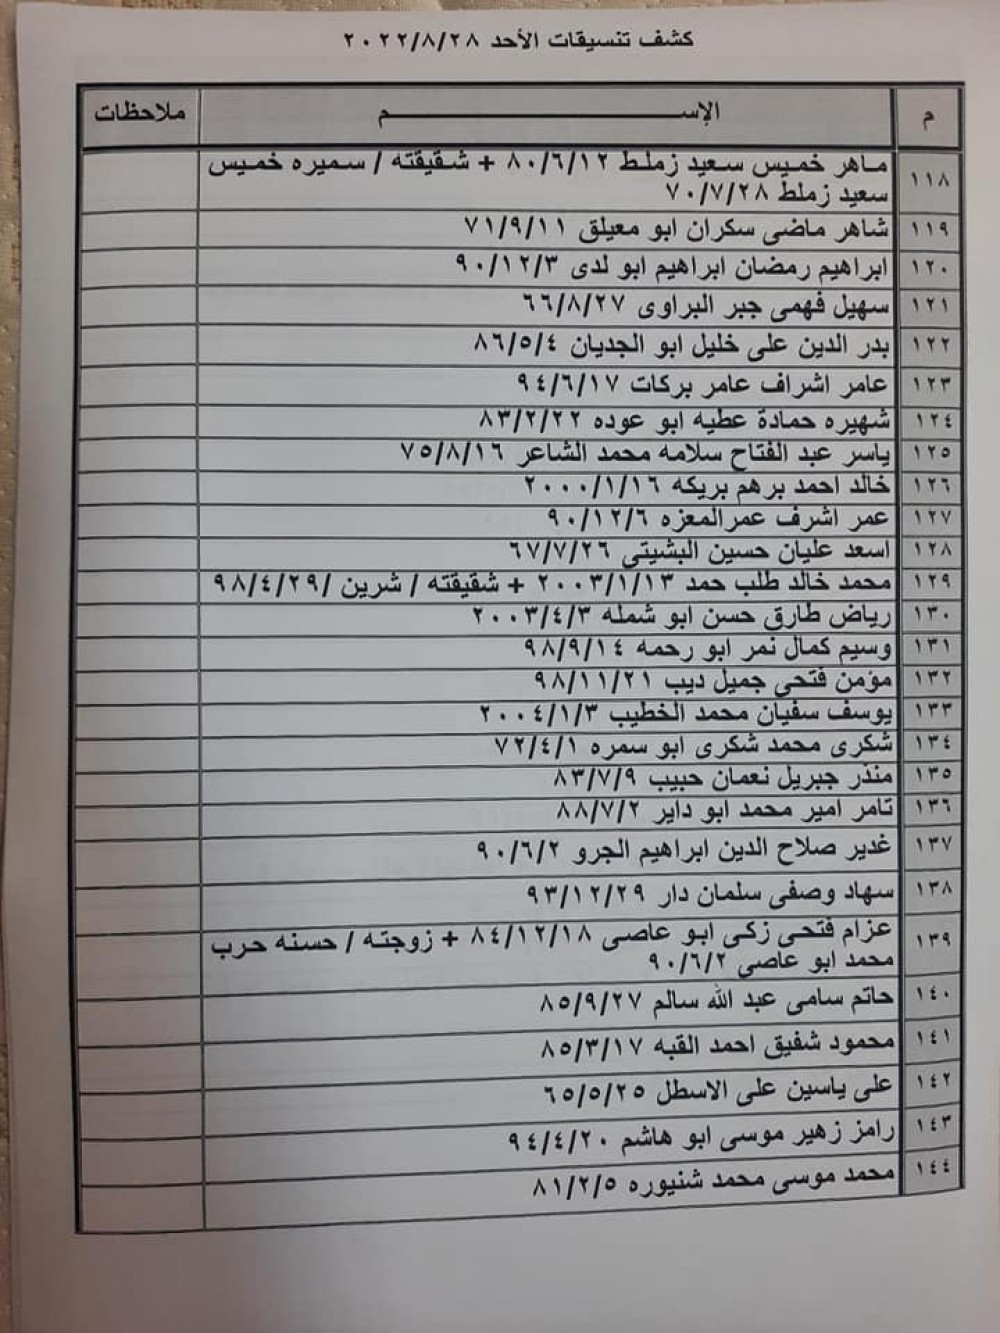 كشف تنسيقات الأحد ٢٠٢٢/٨/٢٨
م الإســـــــــم ملاحظات
١١٨ ماهر خميس سعيد زملط ٨٠/٦/١٢ + شقيقته / سميره خميس
سعيد زملط ٧٠/٧/٢٨
١١٩ شاهر ماضى سكران ابو معيلق ٧١/٩/١١
١٢٠ ابراهيم رمضان ابراهيم ابو لدى ٩٠/١٢/٣
١٢١ سهيل فهمى جبر البراوى ٦٦/٨/٢٧
١٢٢ بدر الدين على خليل ابو الجديان ٨٦/٥/٤
١٢٣ عامر اشراف عامر بركات ٩٤/٦/١٧
١٢٤ شهيره حمادة عطيه ابو عوده ٨٣/٢/٢٢
١٢٥ ياسر عبد الفتاح سلامه محمد الشاعر ٧٥/٨/١٦
١٢٦ خالد احمد برهم بريكه ٢٠٠٠/١/١٦
١٢٧ عمر اشرف عمرالمعزه ٩٠/١٢/٦
١٢٨ اسعد عليان حسين البشيتى ٦٧/٧/٢٦
١٢٩ محمد خالد طلب حمد ٢٠٠٣/١/١٣ + شقيقته / شرين /٩٨/٤/٢٩
١٣٠ رياض طارق حسن ابو شمله ٢٠٠٣/٤/٣
١٣١ وسيم كمال نمر ابو رحمه ٩٨/٩/١٤
١٣٢ مؤمن فتحى جميل ديب ٩٨/١١/٢١
١٣٣ يوسف سفيان محمد الخطيب ٢٠٠٤/١/٣
١٣٤ شكرى محمد شكرى ابو سمره ٧٢/٤/١
١٣٥ منذر جبريل نعمان حبيب ٨٣/٧/٩
١٣٦ تامر امير محمد ابو داير ٨٨/٧/٢
١٣٧ غدير صلاح الدين ابراهيم الجرو ٩٠/٦/٢
١٣٨ سهاد وصفى سلمان دار ٩٣/١٢/٢٩
١٣٩ عزام فتحى زكى ابو عاصى ٨٤/١٢/١٨ + زوجته / حسنه حرب
محمد ابو عاصي ٩٠/٦/٢
١٤٠ حاتم سامى عبد الله سالم ٨٥/٩/٢٧
١٤١ محمود شفيق احمد القبه ٨٥/٣/١٧
١٤٢ على ياسين على الاسطل ٦٥/٥/٢٥
١٤٣ رامز زهير موسى ابو هاشم ٩٤/٤/٢٠
١٤٤ محمد موسى محمد شنيوره ٨١/٢/٥